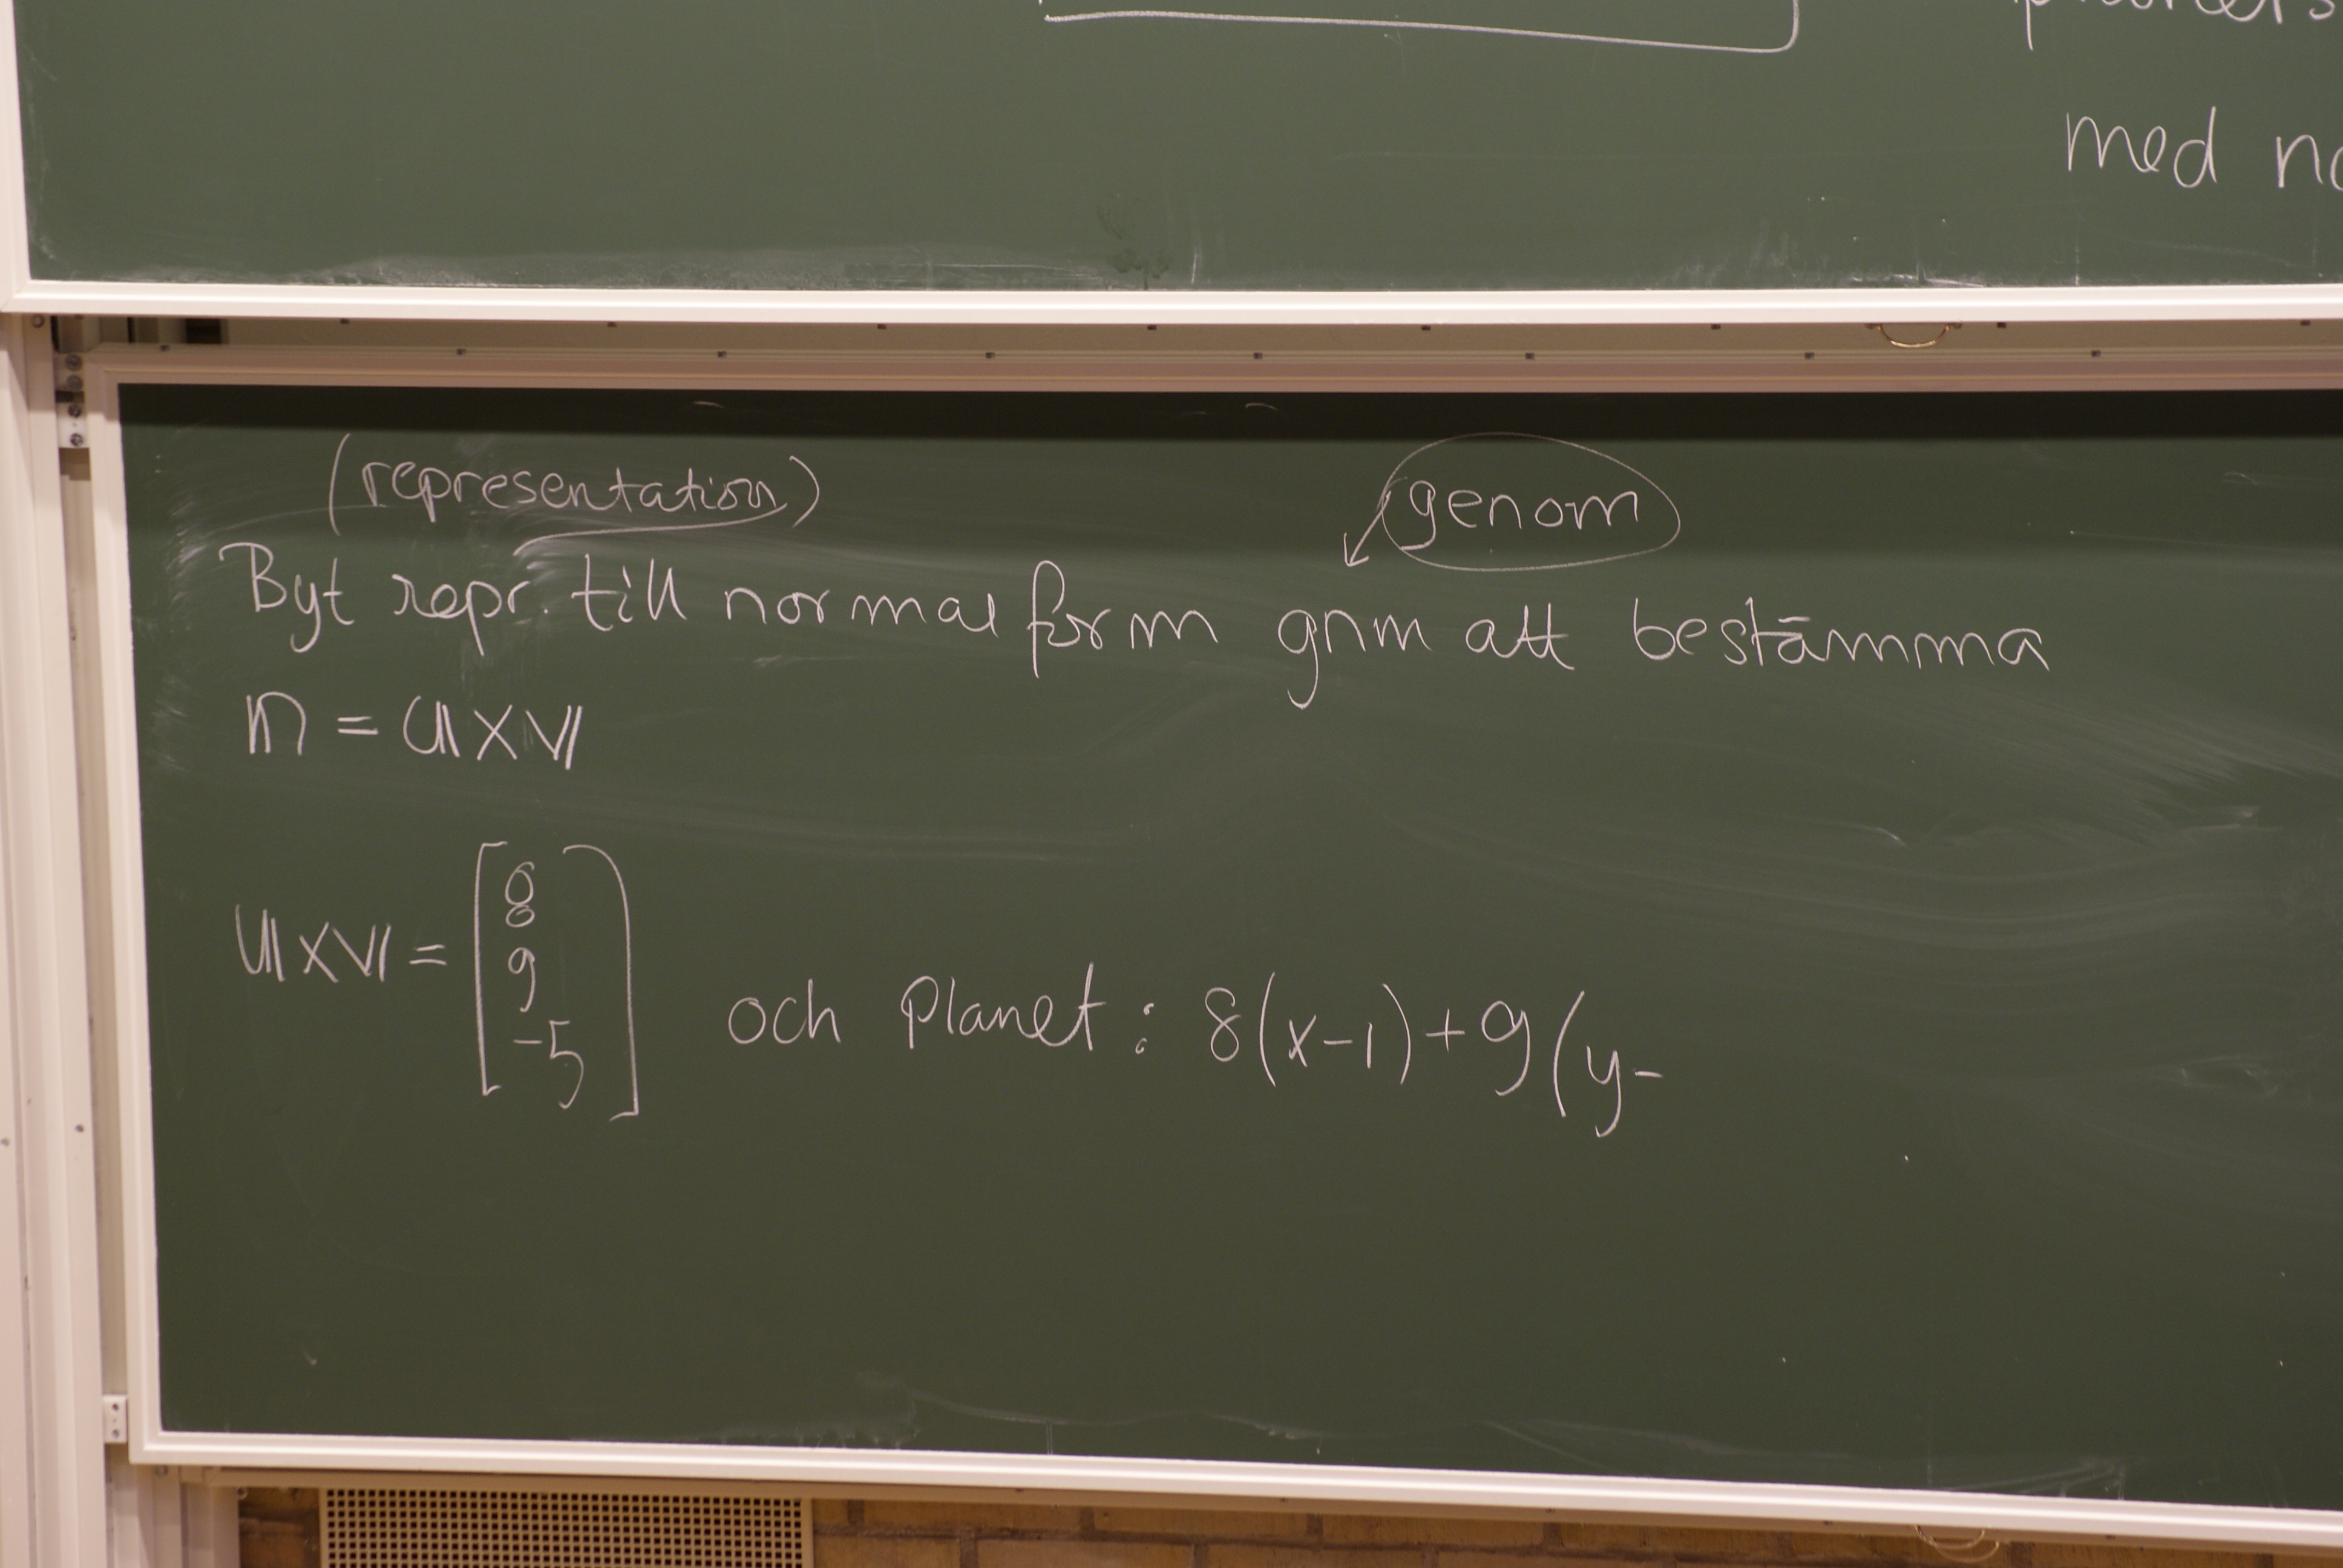 med
(representation)
genom
Byt repr. till normal form gnm att bestämma
n = u x v
u x v = [8 9 -5] och planet: 8(x-1)+9(y-